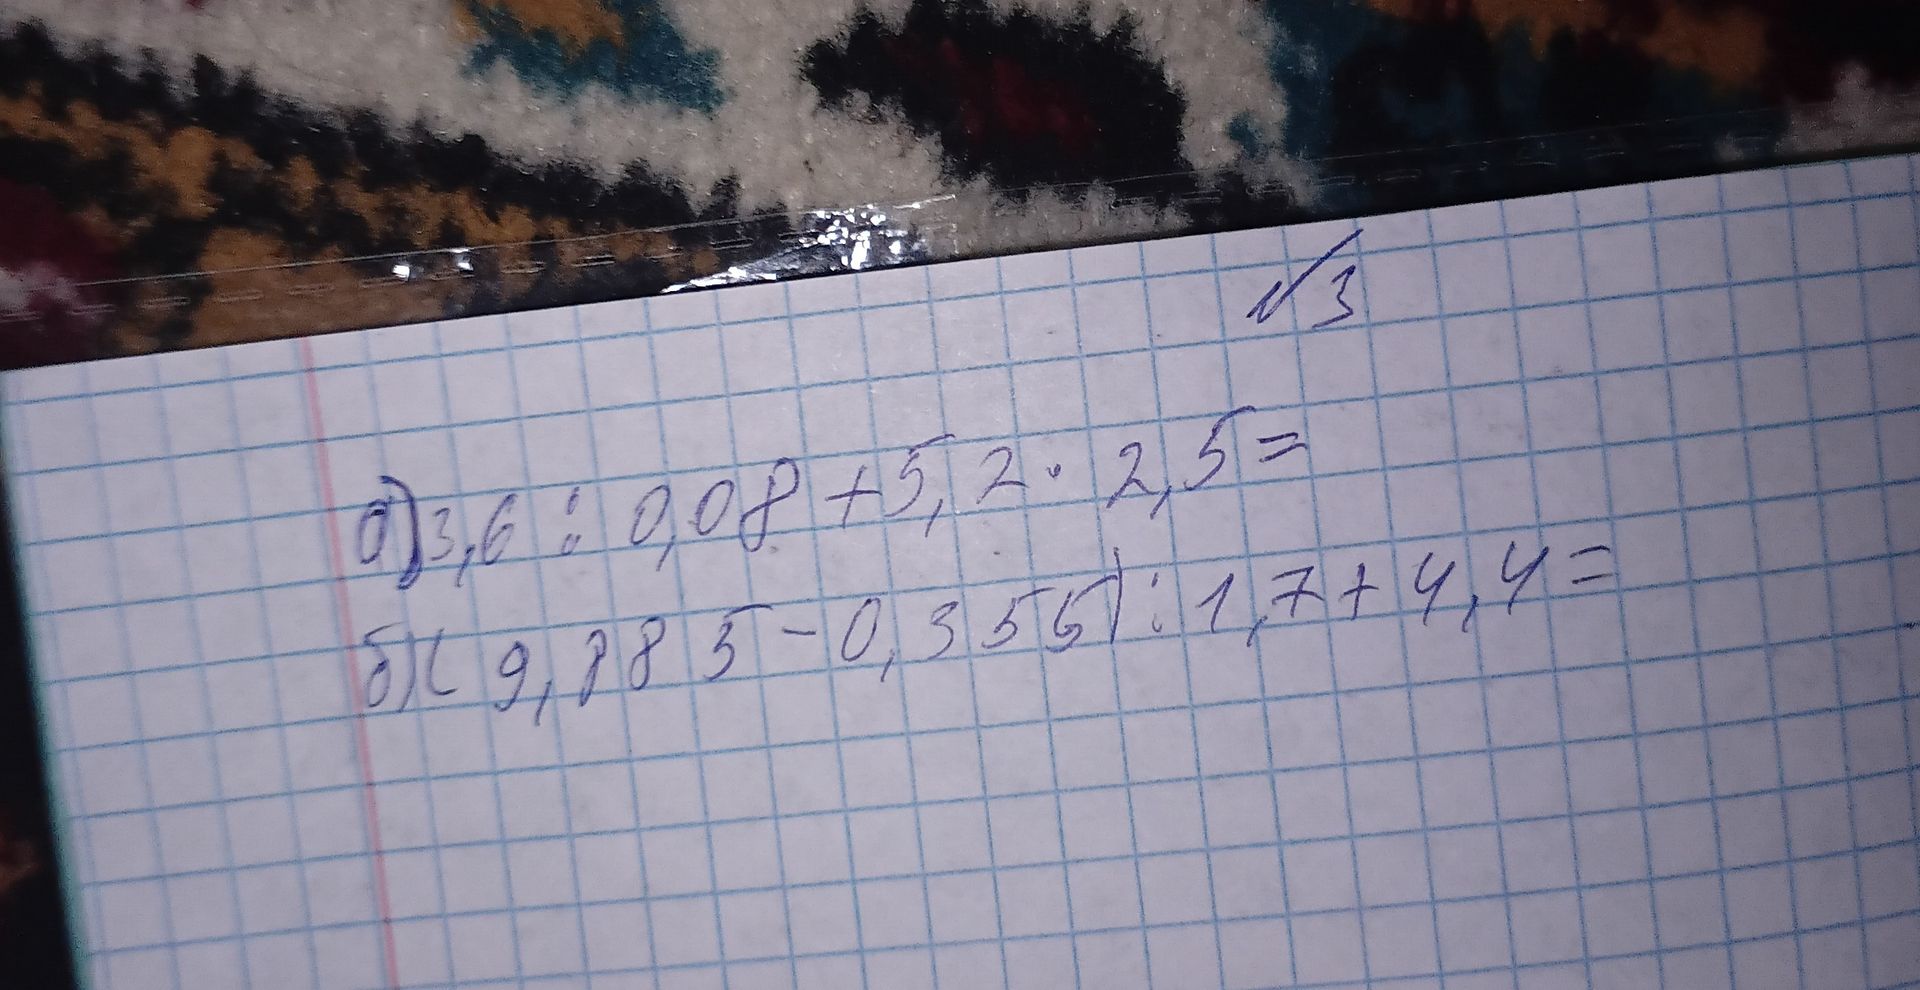 №3
а) 3,6 : 0,08 + 5,2 · 2,5 =
б) ( 9,885 - 0,365) : 1,7 + 4,4 =